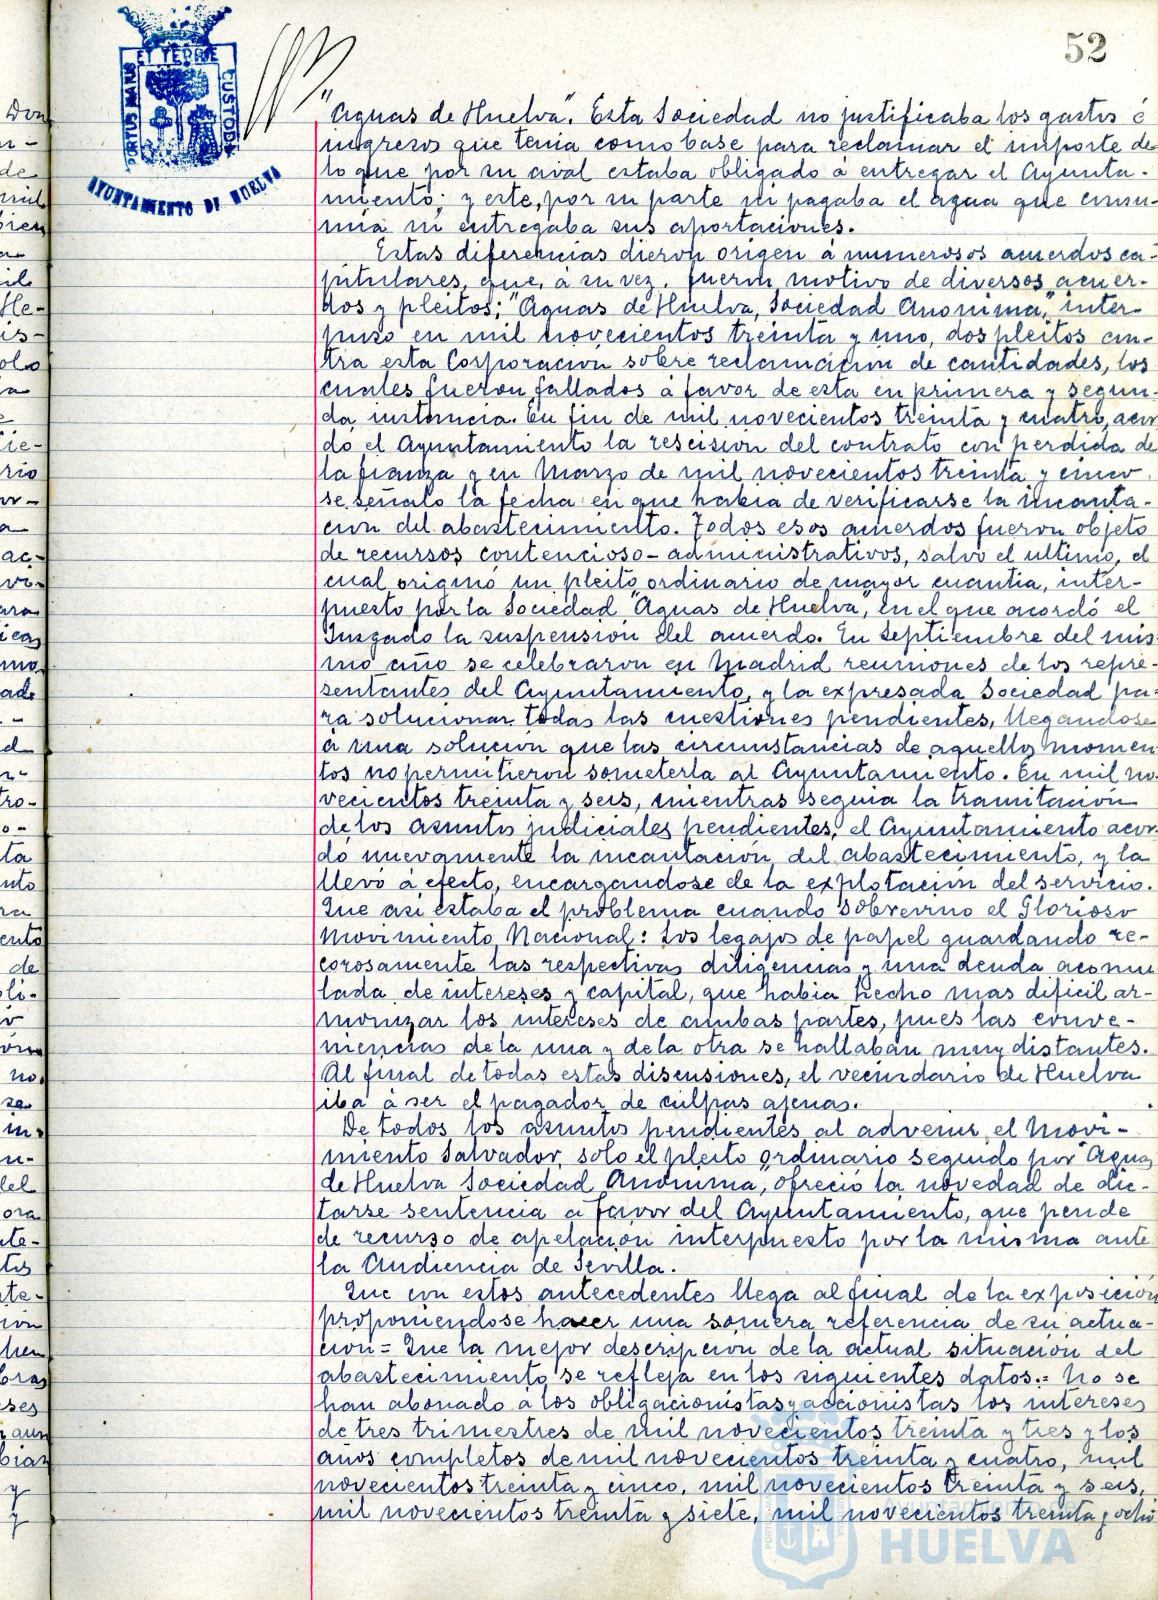 52
PORTUS MARIS ET TERRE CUSTODIA
AYUNTAMIENTO DE HUELVA
"Aguas de Huelva". Esta Sociedad no justificaba los gastos é
ingresos que tenia como base para reclamar el importe de
lo que por su aval estaba obligado á entregar el Ayunta-
miento; y este, por su parte ni pagaba el agua que consu-
mia ni entregaba sus aportaciones.
Estas diferencias dieron origen á numerosos acuerdos ca-
pitulares, que, á su vez, fueron motivo de diversos acuer-
dos y pleitos; "Aguas de Huelva, Sociedad Anonima," inter-
puso en mil novecientos treinta y uno, dos pleitos con-
tra esta Corporación sobre reclamación de cantidades, los
cuales fueron fallados á favor de esta en primera y segun-
da instancia. En fin de mil novecientos treinta y cuatro, acor
dó el Ayuntamiento la rescision del contrato con perdida de
la fianza y en Marzo de mil novecientos treinta y cinco
se señaló la fecha en que habia de verificarse la incauta-
cion del abastecimiento. Todos esos acuerdos fueron objeto
de recursos contencioso-administrativos, salvo el ultimo, el
cual originó un pleito ordinario de mayor cuantia, inter-
puesto por la Sociedad "Aguas de Huelva", en el que acordó el
Juzgado la suspensión del acuerdo. En Septiembre del mis-
mo año se celebraron en Madrid reuniones de los repre-
sentantes del Ayuntamiento, y la expresada Sociedad pa-
ra solucionar todas las cuestiones pendientes, llegandose
á una solución que las circunstancias de aquellos momen
tos no permitieron someterla al Ayuntamiento. En mil no-
vecientos treinta y seis, mientras seguia la tramitación
de los asuntos judiciales pendientes, el Ayuntamiento acor-
dó nuevamente la incautación del abastecimiento, y la
llevó á efecto, encargandose de la explotación del servicio.
Que asi estaba el problema cuando sobrevino el Glorioso
Movimiento Nacional: Los legajos de papel guardando re-
corosamente las respectivas diligencias y una deuda acomu
lada de intereses y capital, que habia hecho mas dificil ar-
monizar los intereses de ambas partes, pues las conve-
niencias de la una y de la otra se hallaban muy distantes.
Al final de todas estas discusiones, el vecindario de Huelva
iba á ser el pagador de culpas ajenas.
De todos los asuntos pendientes al advenir el Movi-
miento Salvador, solo el pleito ordinario seguido por "Aguas
de Huelva Sociedad Anonima", ofreció la novedad de dic-
tarse sentencia a favor del Ayuntamiento, que pende
de recurso de apelación interpuesto por la misma ante
la Audiencia de Sevilla.
Que con estos antecedentes llega al final de la exposición
proponiendose hacer una somera referencia de su actua-
cion = Que la mejor descripcion de la actual situación del
abastecimiento se refleja en los siguientes datos.= No se
han abonado á los obligacionistas y accionistas los intereses
de tres trimestres de mil novecientos treinta y tres y los
años completos de mil novecientos treinta y cuatro, mil
novecientos treinta y cinco, mil novecientos treinta y seis,
mil novecientos treinta y siete, mil novecientos treinta y ocho
Ayuntamiento de
HUELVA